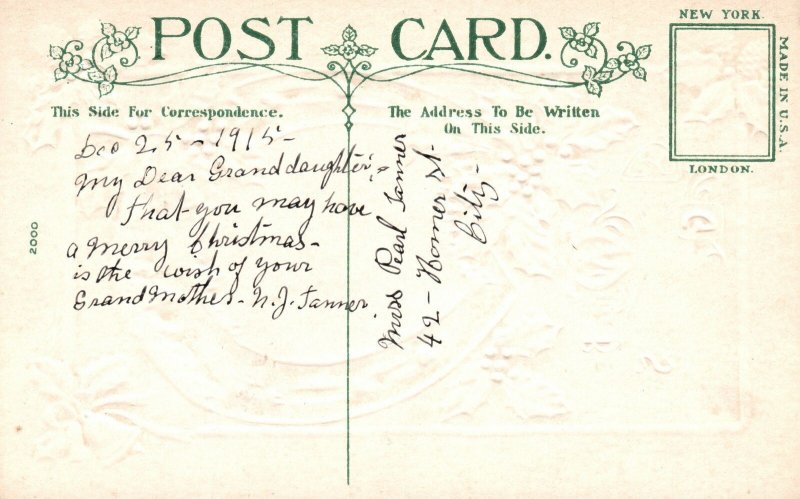 POST CARD.
NEW YORK.
MADE IN U.S.A.
LONDON.
This Side For Correspondence.
The Address To Be Written
On This Side.
2000
Dec 25 - 1915 -
My Dear Granddaughter, -
that you may have
a Merry Christmas -
is the wish of your
GrandMother - N. J. Tanner
Miss Pearl Tanner
42 - Homer St.
City -